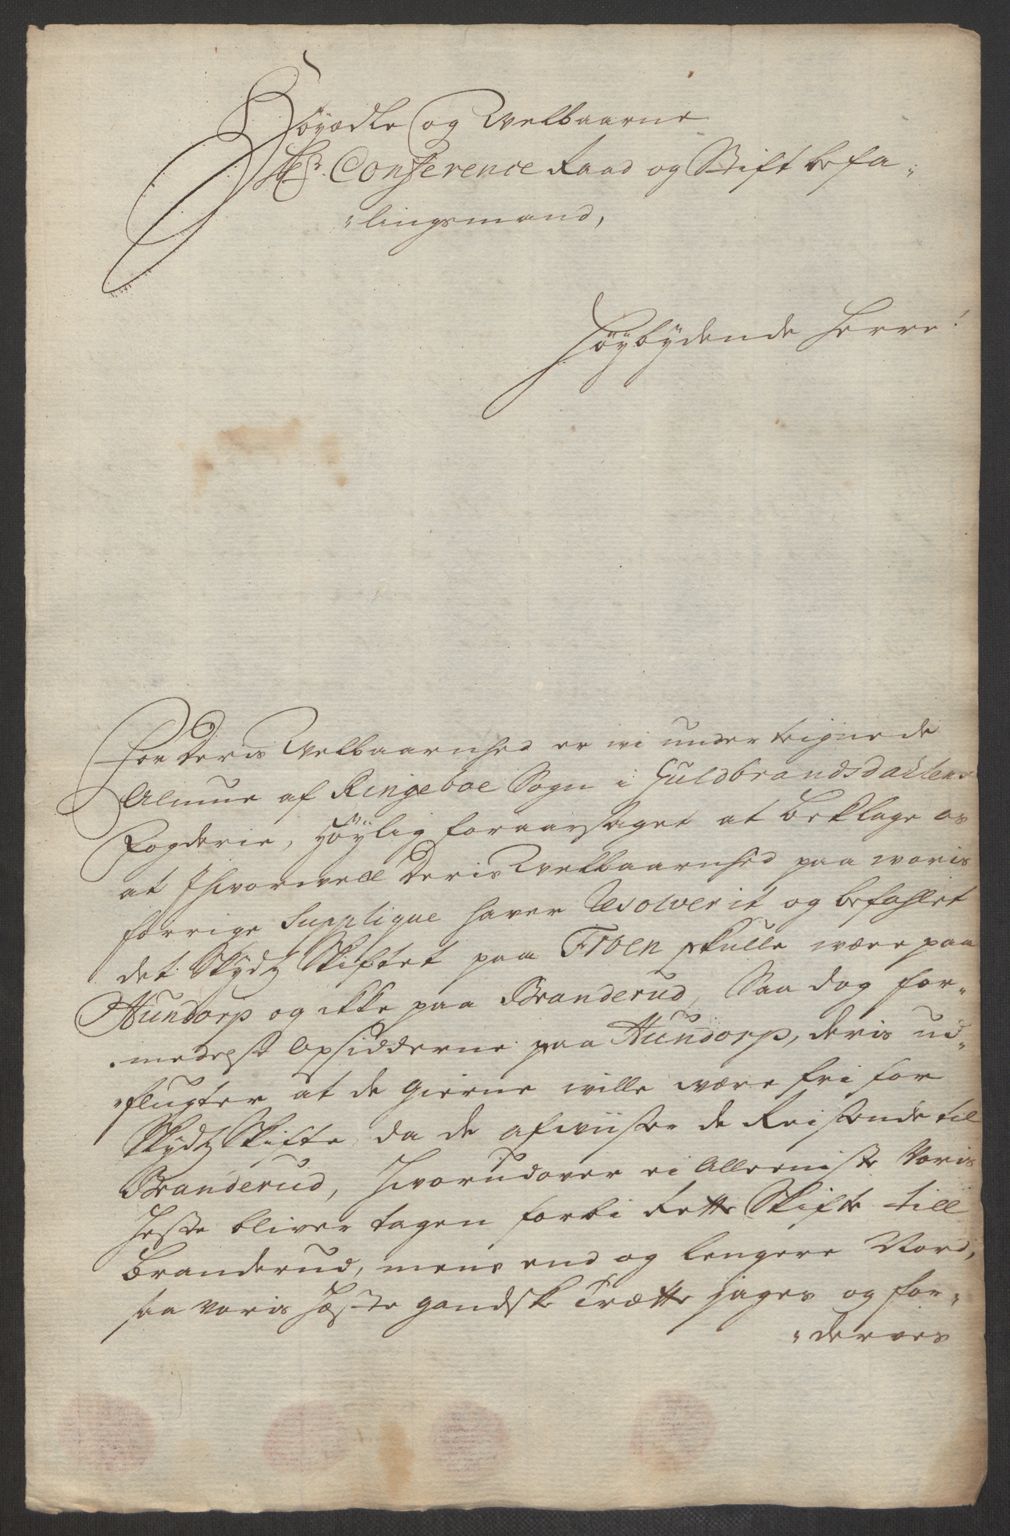 Höyædle og Welbaarne
Hr. Conference Raad og Stift befa-
lingsmand,
Höybydende Herre!
For Deris Welbaarnhed er wi under teignede
Almue af Ringeboe Sogn i Guldbrandsdahlens
Fogderie, höylig foraarsaget at beklage os
at ihvorwell Deris Welbaarnhed paa woris
forrige Supplique haver Resolverit og befahlet
det Skydtz Skiftet paa Froen skulle være paa
Hundorp og ikke paa Branderud, Saa dog for-
medelst Opsidderne paa Hundorp, deris ud-
flugter at de gierne wille være fri for
Skydtz Skifte, da de afwiiser de Reisende til
Branderud, hvorudover ei Alleeniste Voris
Heste bliver tagen forbi Rette Skifte till
Branderud, mens end og lengere Nord,
saa voris Hæste gandske Trætte jages og for-
derves